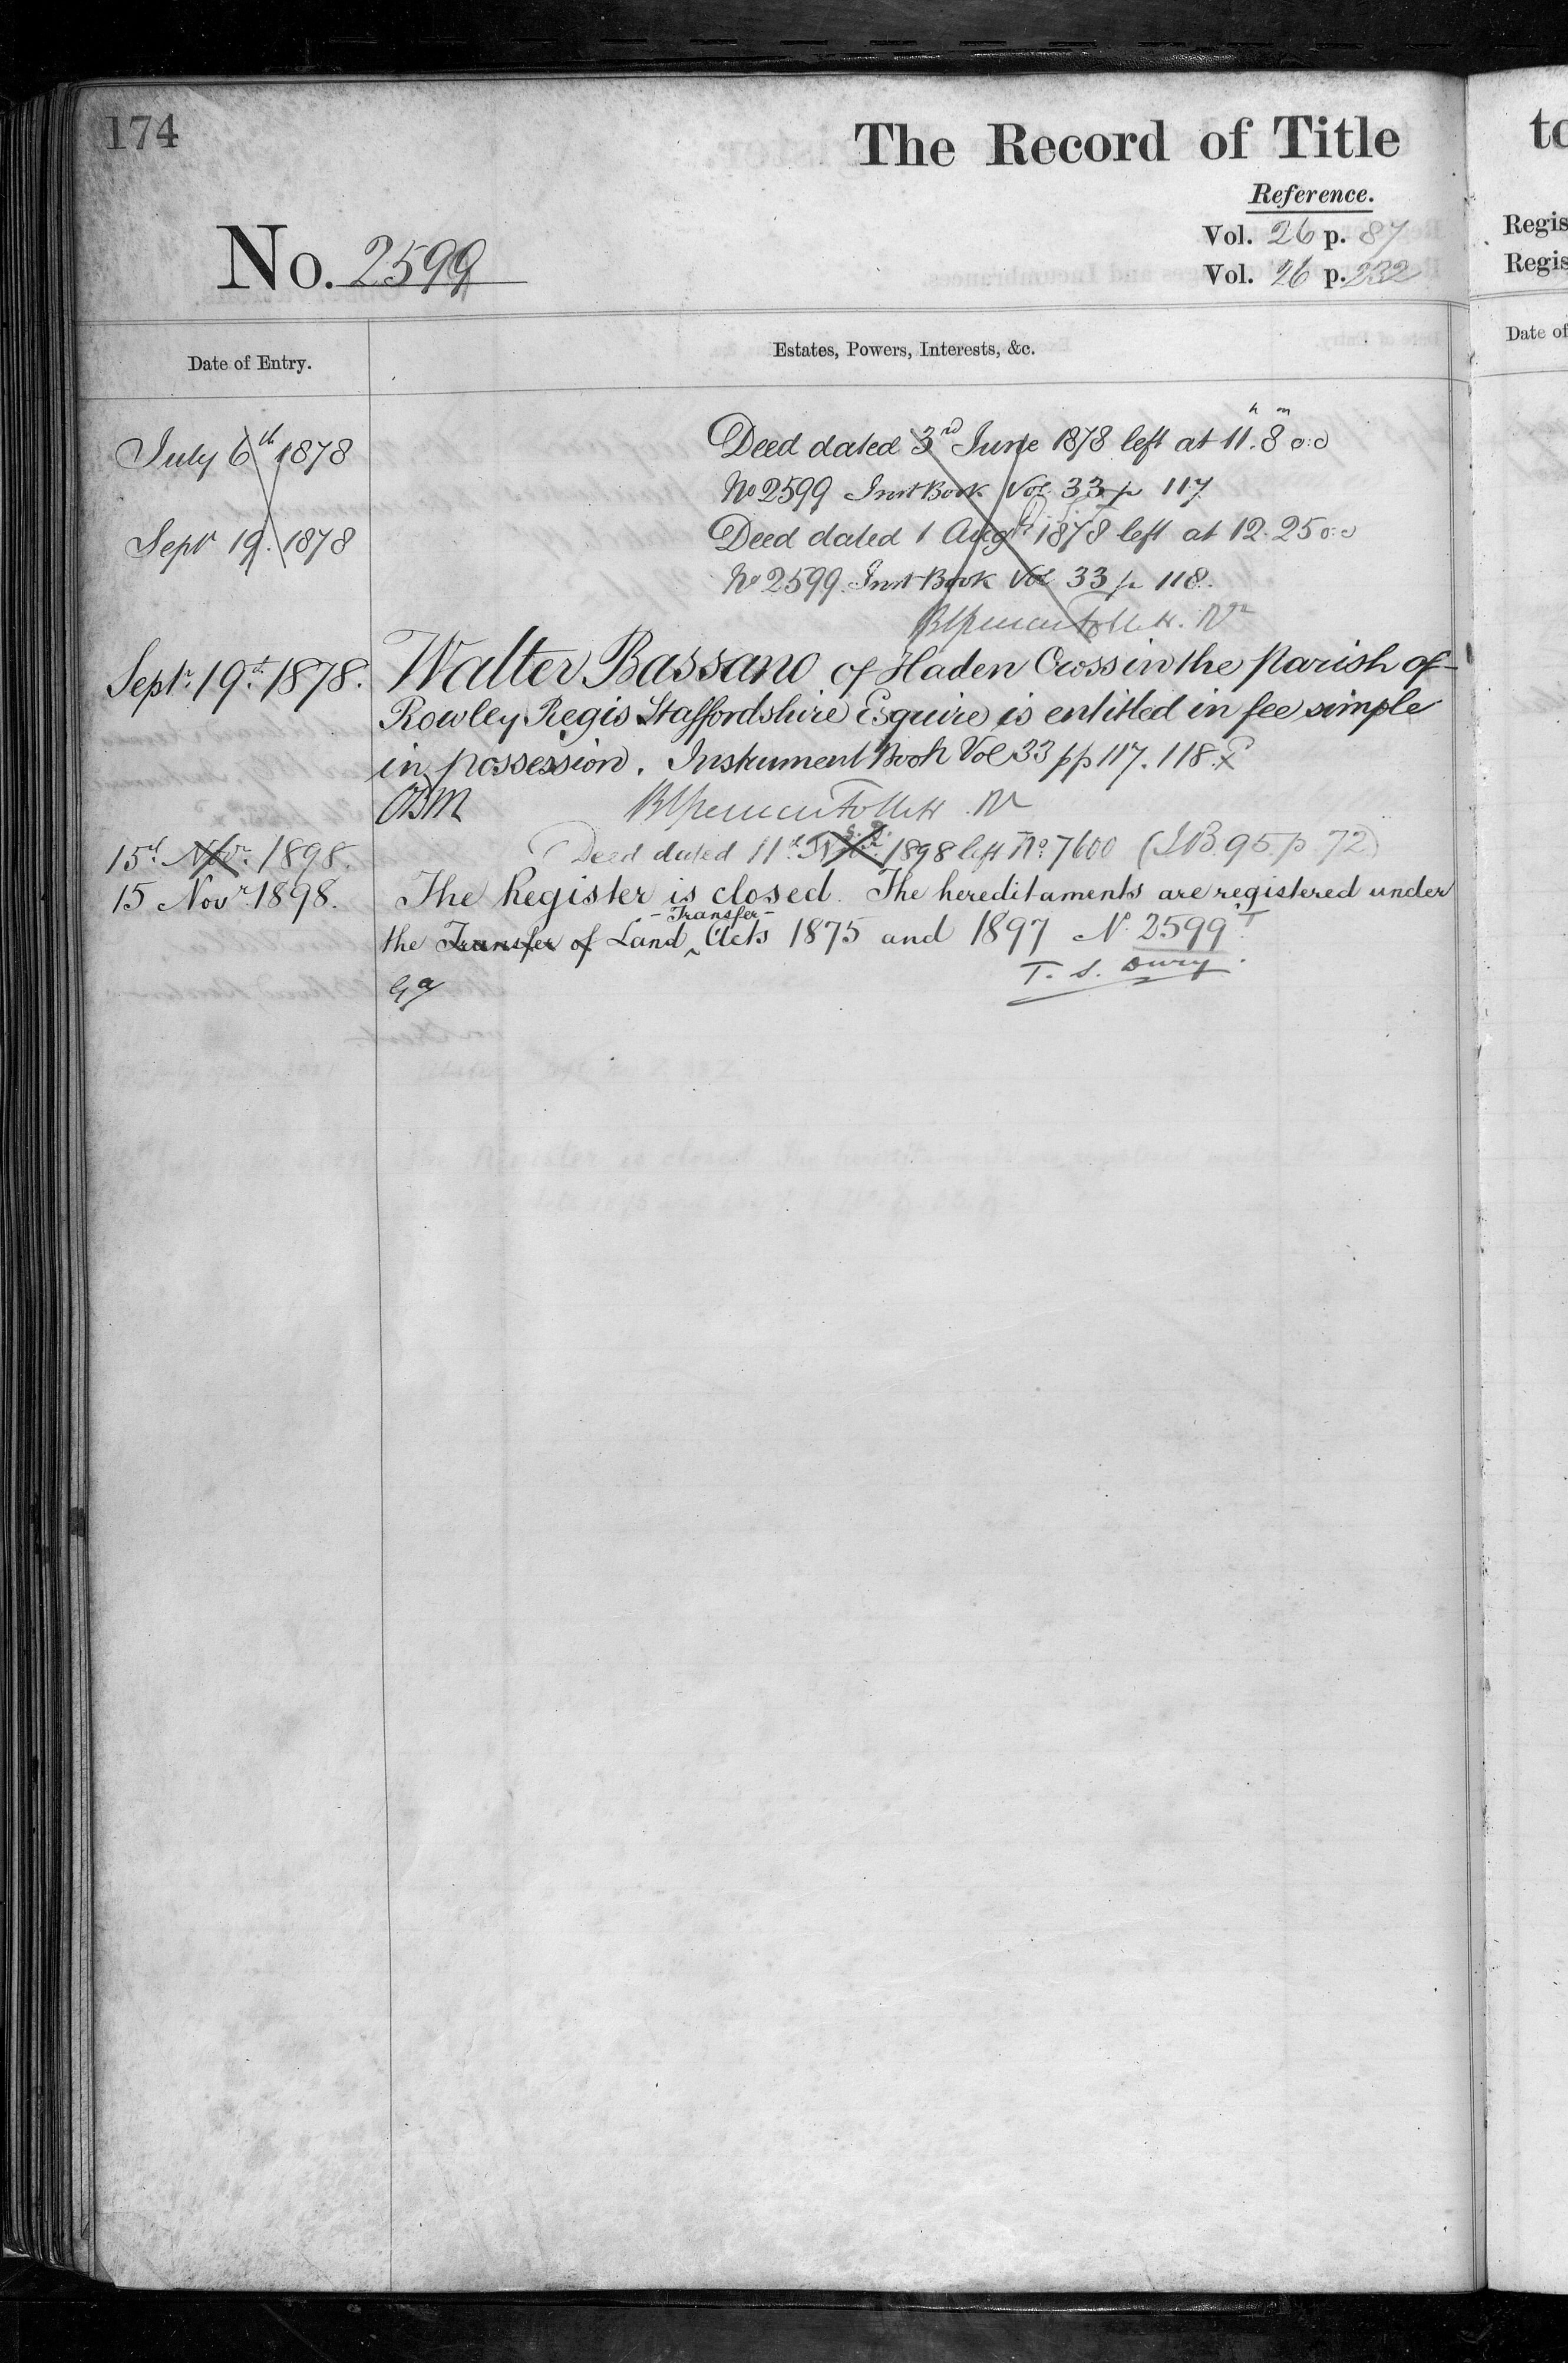 174
The Record of Title
Reference.
No. 2599
Vol. 26 p. 87
Vol. 26 p. 232
Date of Entry.
Estates, Powers, Interests, &c.
July 6th 1878 Deed dated 3rd June 1878 left at 11h. 8m o.c
No 2599 Inst Book Vol. 33 p 117
Septr 19. 1878 Deed dated 1 Augt 1878 left at 12. 25 o.c
No 2599. Inst Book Vol 33 p 118.
Septr 19th 1878. Walter Bassano of Haden Cross in the Parish of
Rowley Regis Staffordshire Esquire is entitled in fee simple
in possession. Instrument Book Vol 33 pp 117. 118.
15th Novr 1898. Deed dated 11th Novr 1898 left No. 7600 (I.B. 95. p. 72)
15 Novr 1898. The Register is closed. The hereditaments are registered under
- Transfer -
the Transfer of Land Acts 1875 and 1897 No 2599T.
to
Regis
Regis
Date of